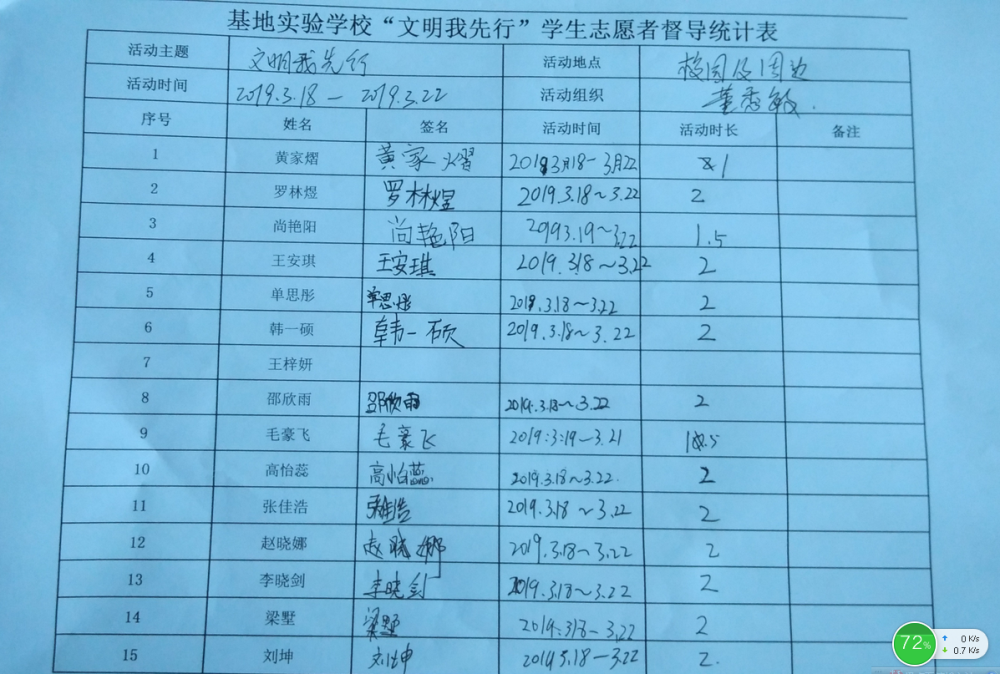 基地实验学校“文明我先行”学生志愿者督导统计表
活动主题 文明我先行 活动地点 校园及周边
活动时间 2019.3.18 — 2019.3.22 活动组织 董香敏.
序号 姓名 签名 活动时间 活动时长 备注
1 黄家熠 黄家熠 2019 3月18-3月22 1
2 罗林煜 罗林煜 2019.3.18~3.22 2
3 尚艳阳 尚艳阳 1.5
4 王安琪 王安琪 2019.3.18~3.22 2
5 单思彤 单思彤 2019.3.18~3.22 2
6 韩一硕 韩一硕 2019.3.18~3.22 2
7 王梓妍
8 邵欣雨 邵欣雨 2019.3.18~3.22 2
9 毛豪飞 毛豪飞 2019.3.19-3.21
10 高怡蕊 高怡蕊 2019.3.18~3.22. 2
11 张佳浩 张佳浩 2019.3.18~3.22 2
12 赵晓娜 赵晓娜 2019.3.18~3.22 2
13 李晓剑 李晓剑 2019.3.18~3.22 2
14 梁墅 梁墅 2019.3.18-3.22 2
15 刘坤 刘坤 2019.3.18-3.22 2.
72% 0 K/s
0.7 K/s